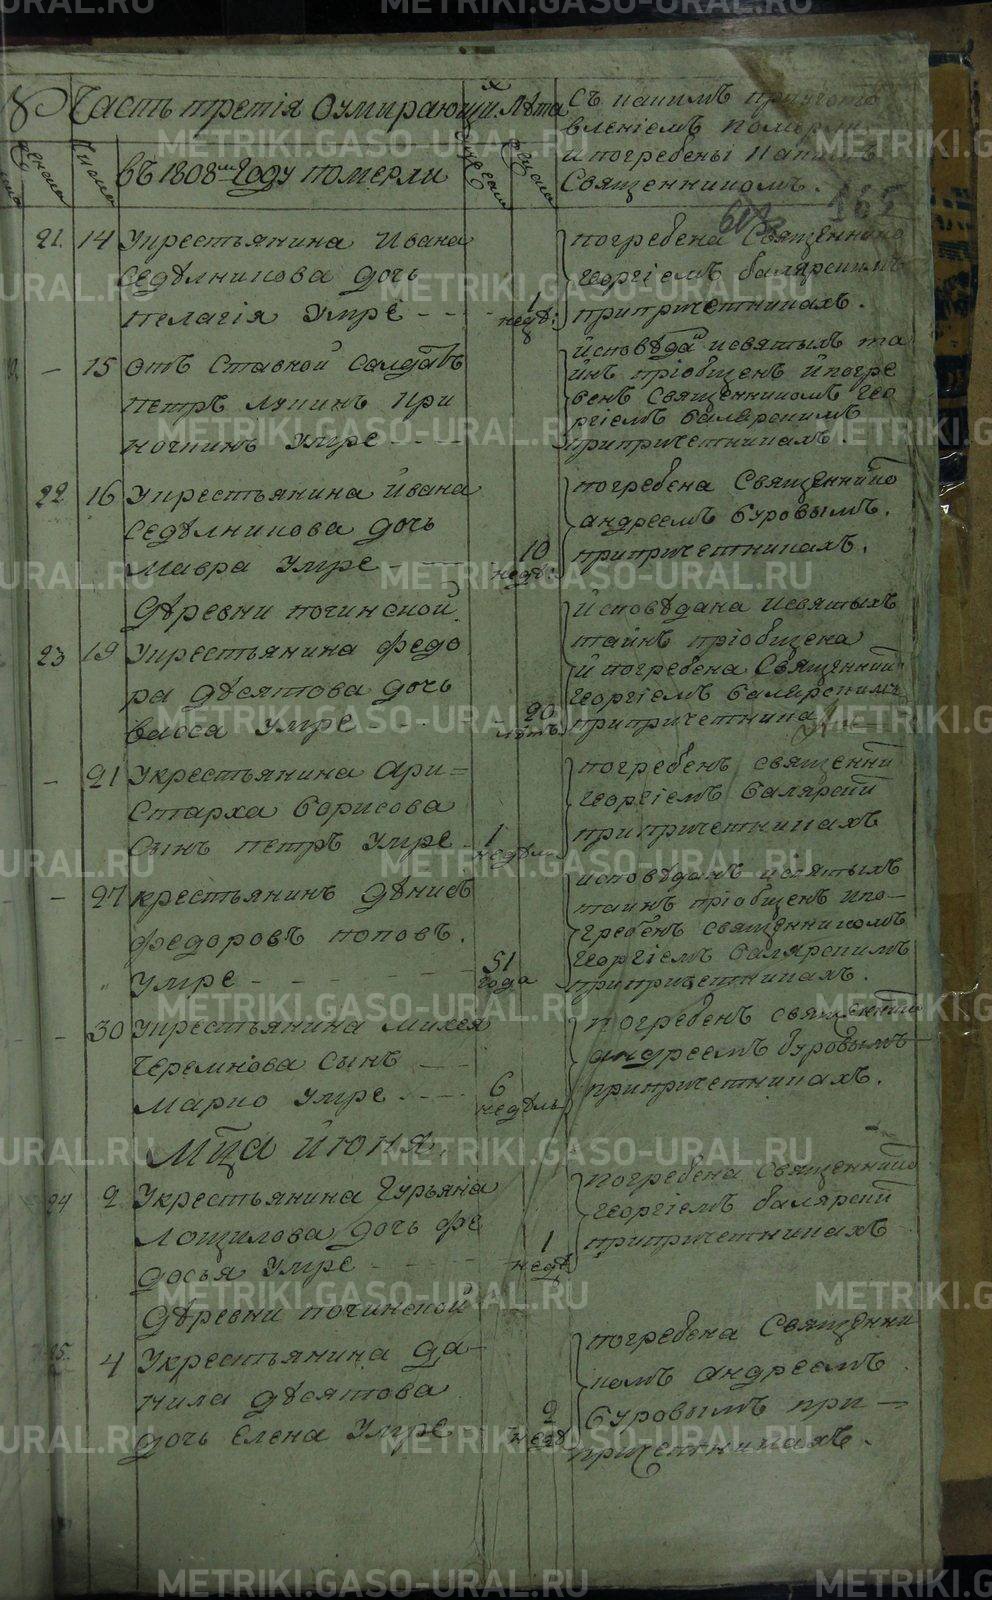 Часть третія Оумирающихъ Лѣта
въ 1808мъ Году померли
Съ какимъ пригото
вленіемъ померли
и погребены и какимъ
Священникомъ.
165
21. 14 Укрестьянина Ивана
Седѣлникова дочь
Пелагія Умре - - 1 недѣ:
погребена Священнико
Георгіемъ Балярскимъ
припричетникахъ.
— 15 Отъ Ставной Салдатъ
Петръ Лукинъ При
Умре - - -
Исповѣдан исвятыхъ та
инъ пріобщенъ Ипогре
бенъ Священникомъ Гео
ргіемъ Балярскимъ
припричетникахъ.
22 16 Укрестьянина Ивана
Седѣлникова дочь
Мавра Умре - - 10 недѣ:
погребена Священнико
андреемъ Буровымъ.
припричетникахъ.
Дѣревни починской.
23 19 Укрестьянина Федо
ра Дѣсятова дочь
Васса Умре - - 20 лѣтъ
Исповѣдана Исвятыхъ
Тайнъ пріобщена
И погребена Священник
Георгіемъ Балярскимъ
припричетника
— 21 Укрестьянина Ари=
Старха Борисова
Сынъ петръ Умре - 1 недѣли
погребенъ священни
Георгіемъ Балярски
припричетникахъ
— 27 крестьянинъ Дѣнисъ
Федоровъ поповъ.
Умре - - - 51 года
исповѣданъ исвятыхъ
таинъ пріобщенъ Ипо-
гребенъ священникомъ
Георгіемъ Балярскимъ
припричетникахъ.
— 30 Укрестьянина Михея
Черемнова сынъ
Марко Умре - - 6 недѣль
погребенъ священнико
андреемъ Буровымъ
припричетникахъ.
Мца Июня.
24 2 Укрестьянина Гурьяна
Лощилова дочь Фе
досья Умре - - 1 недѣ
погребена Священнико
Георгіемъ Балярски
припричетникахъ
Дѣревни починской
25. 4 Укрестьянина Да-
нила Дѣсятова
дочь Елена Умре 2 недѣ
погребена Священни
комъ Андреемъ
Буровымъ при-
причетникахъ.
METRIKI.GASO-URAL.RU